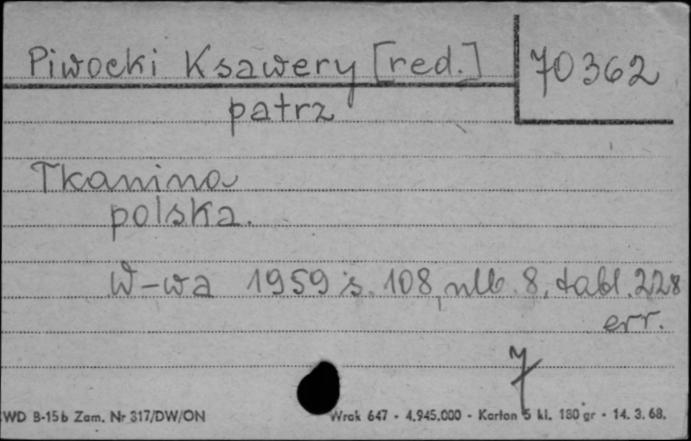 Piwocki Ksawery [red.]
70362
patrz
Tkanina
polska.
W-wa 1959 s. 108, nlb. 8, tabl. 228
err.
7
WD B-15b Zam. Nr 317/DW/ON
Wrak 647 - 4.945.000 - Karton 5 kl. 180 gr - 14. 3. 68.